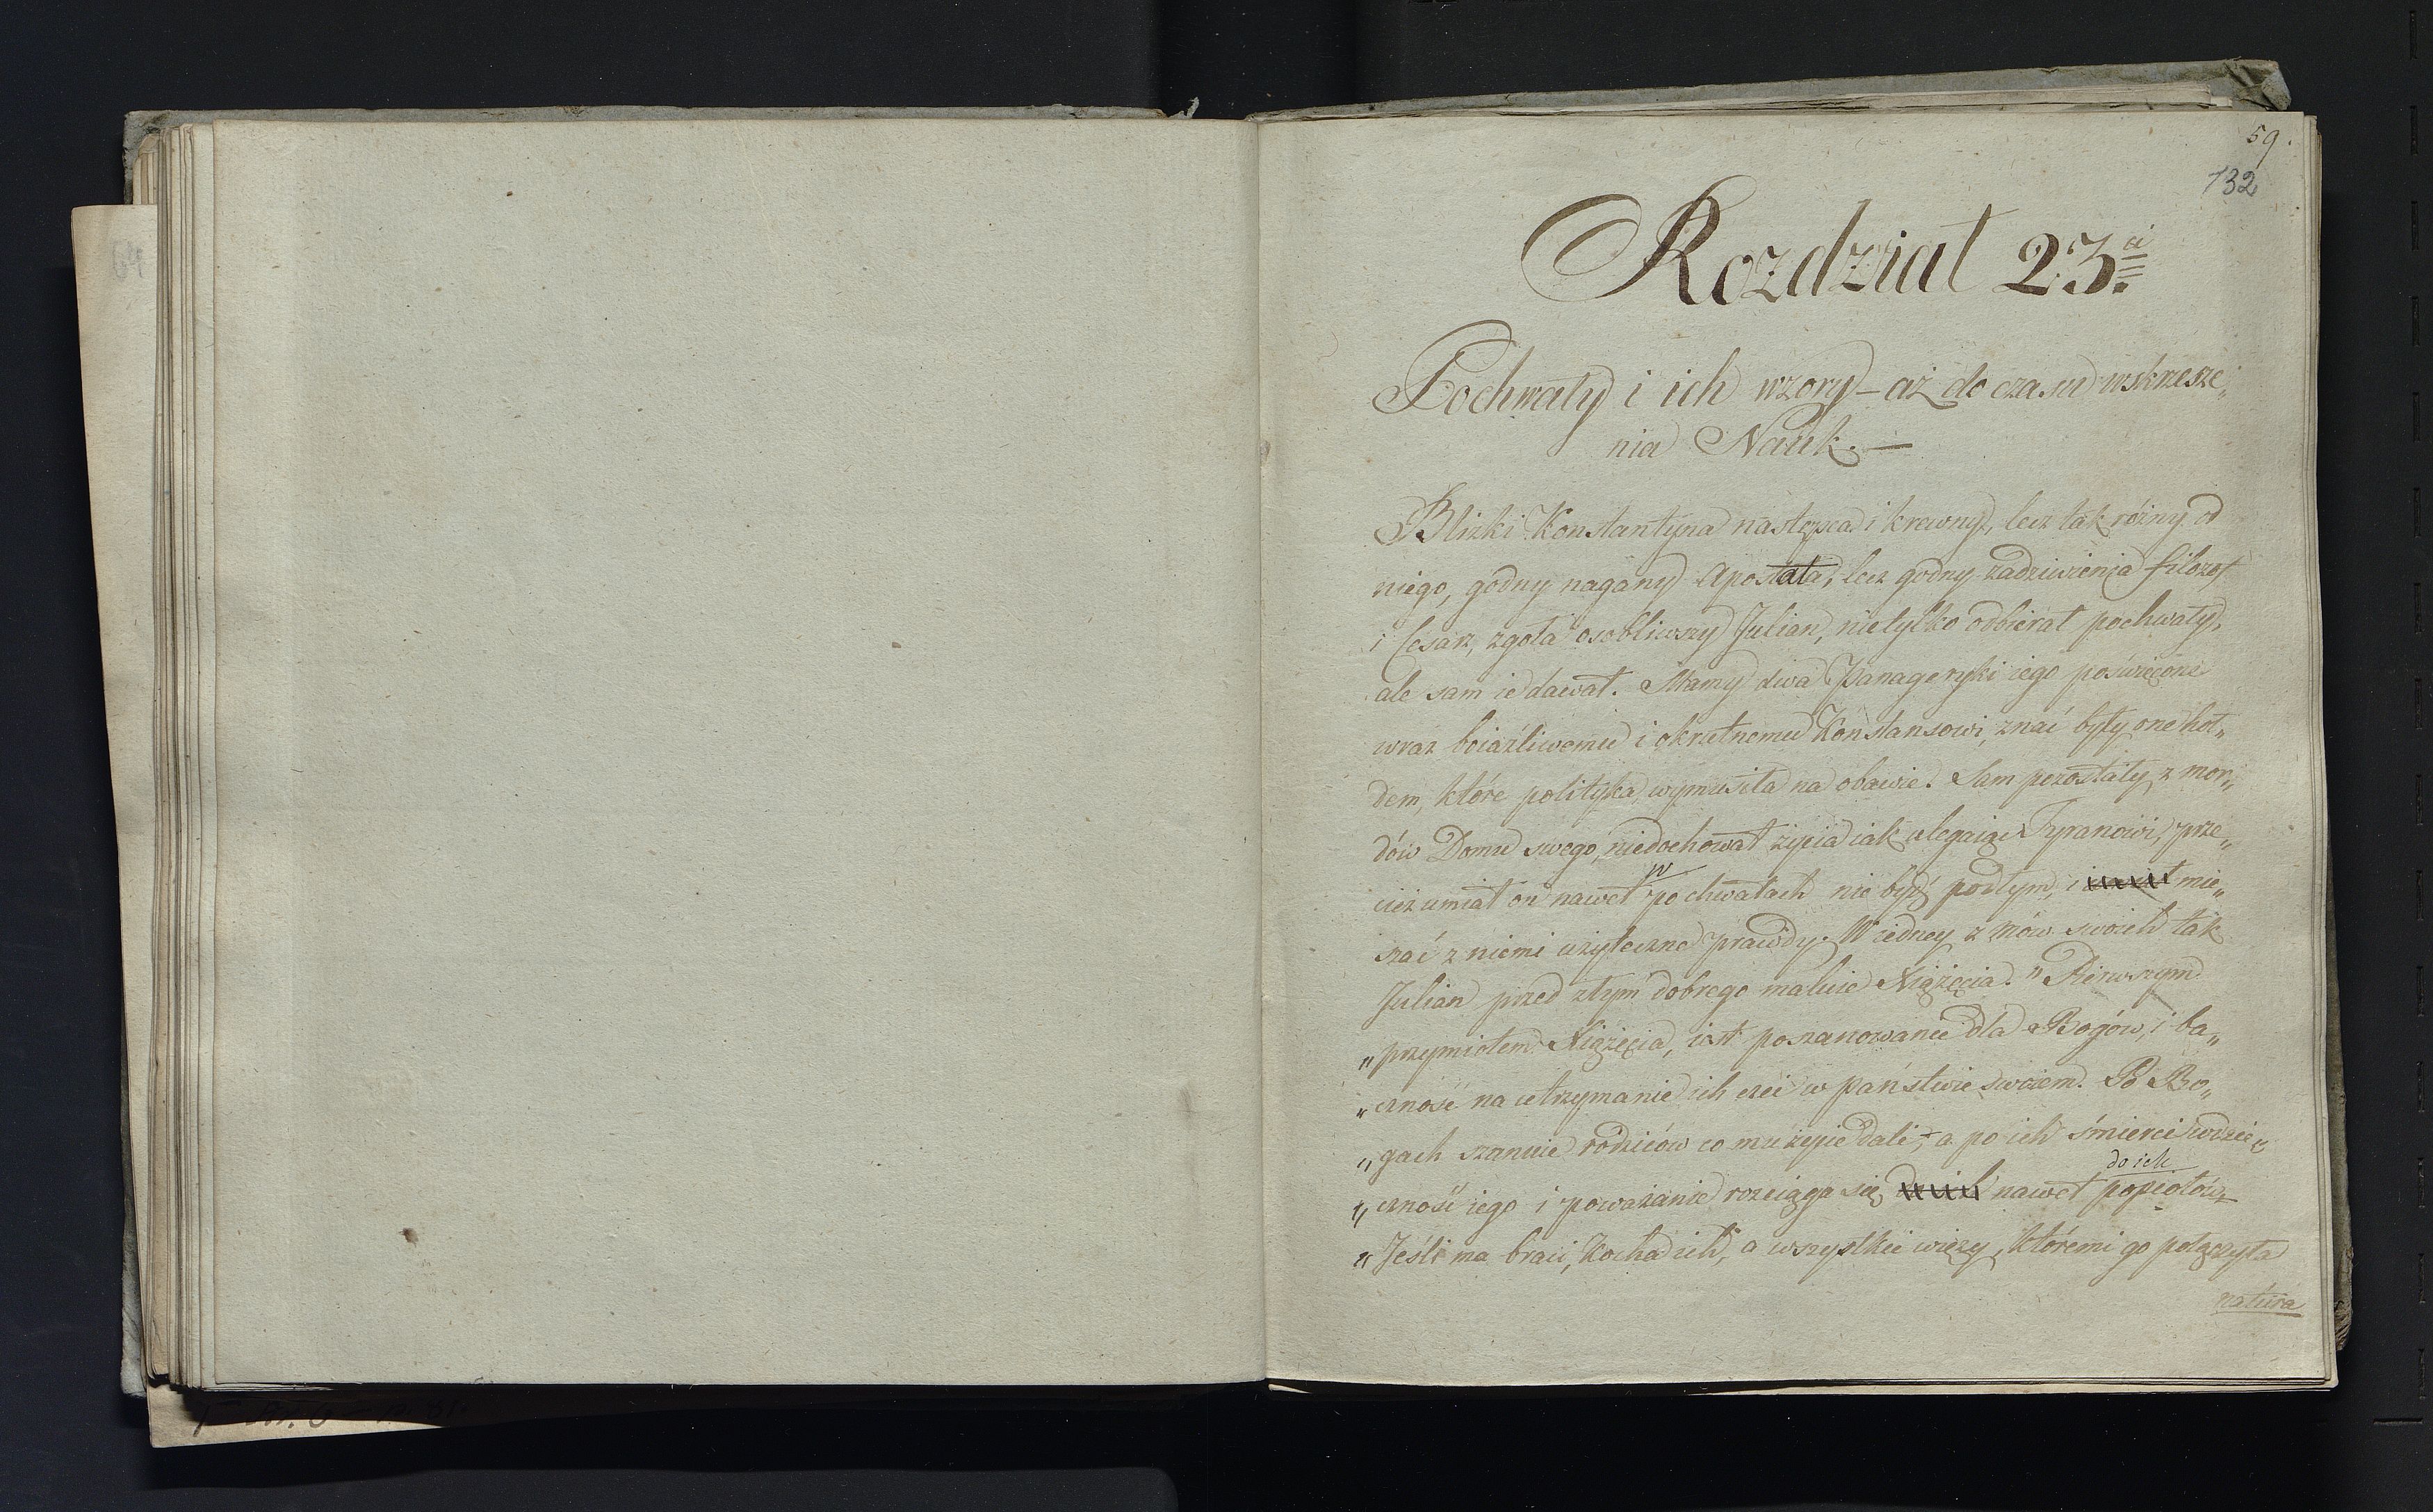 59.
132
Rozdział 23ci
Pochwały i ich wzory – aż do czasu wskrzesze„
nia Nauk. —
Blizki Konstantyna następca i krewny, lecz tak różny od
niego, godny nagany Apostata, lecz godny zadziwienia filozof
i Cesarz, zgoła osobliwszy Julian, nietylko odbierał pochwały,
ale sam ie dawał. Mamy dwa Panageryki iego poświęcone
wraz boiaźliwemu i okrutnemu Konstansowi, znać były one hoł„
dem, które polityka wymusiła na obawie. Sam pozostały z mor„
dów Domu swego, niedochował życia iak ulegaiąc Tyranowi, prze„
cież umiał on nawet w pochwałach nie być podłym, i mie„
szać z niemi użyteczne prawdy. W iedney z mów swoich tak
Julian przed złym dobrego maluie Xiążęcia. " Pierwszym
„ przymiotem Xiążęcia, iest poszanowanie dla Bogów, i ba„
„ czność na utrzymanie ich czci w państwie swoiem. Po Bo„
„ gach szanuie rodziców co mu życie dali, a po ich śmierci wdzię„
„ czność iego i poważanie rozciąga się nawet do ich popiołów
„ Jeśli ma braci, kocha ich, a wszystkie więzy, któremi go połączyła
natura